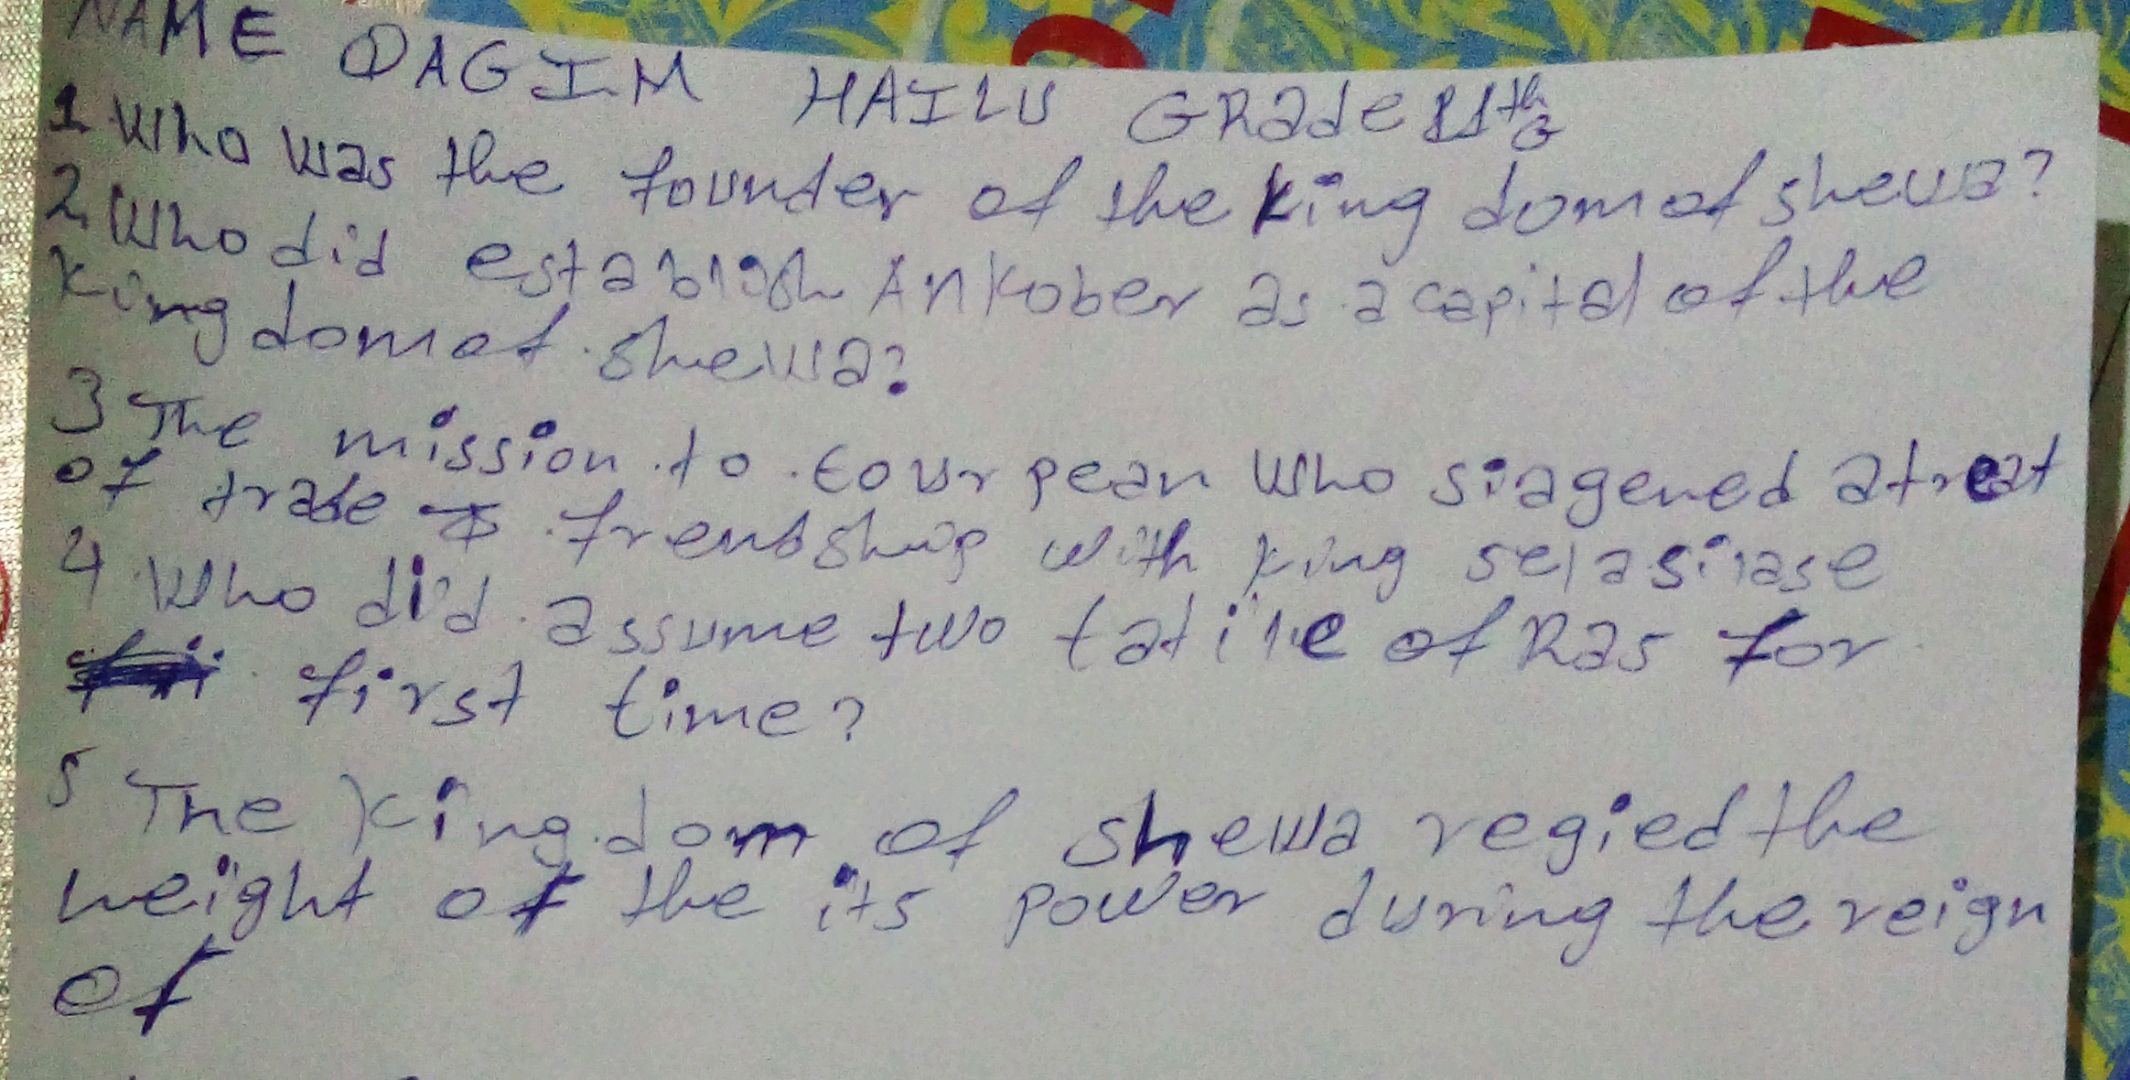 NAME DAGIM HAILU GRade 11th G
1 Who was the founder of the king dom of shewa?
2 Who did establish Ankober as a capital of the
king dom of shewa?
3 The mission to Eour pean who siagened a treat
of trade & frendship with king selasiase
4 Who did assume two tatile of Ras for
first time?
5 The king dom of shewa regied the
height of the its power during the reign
of